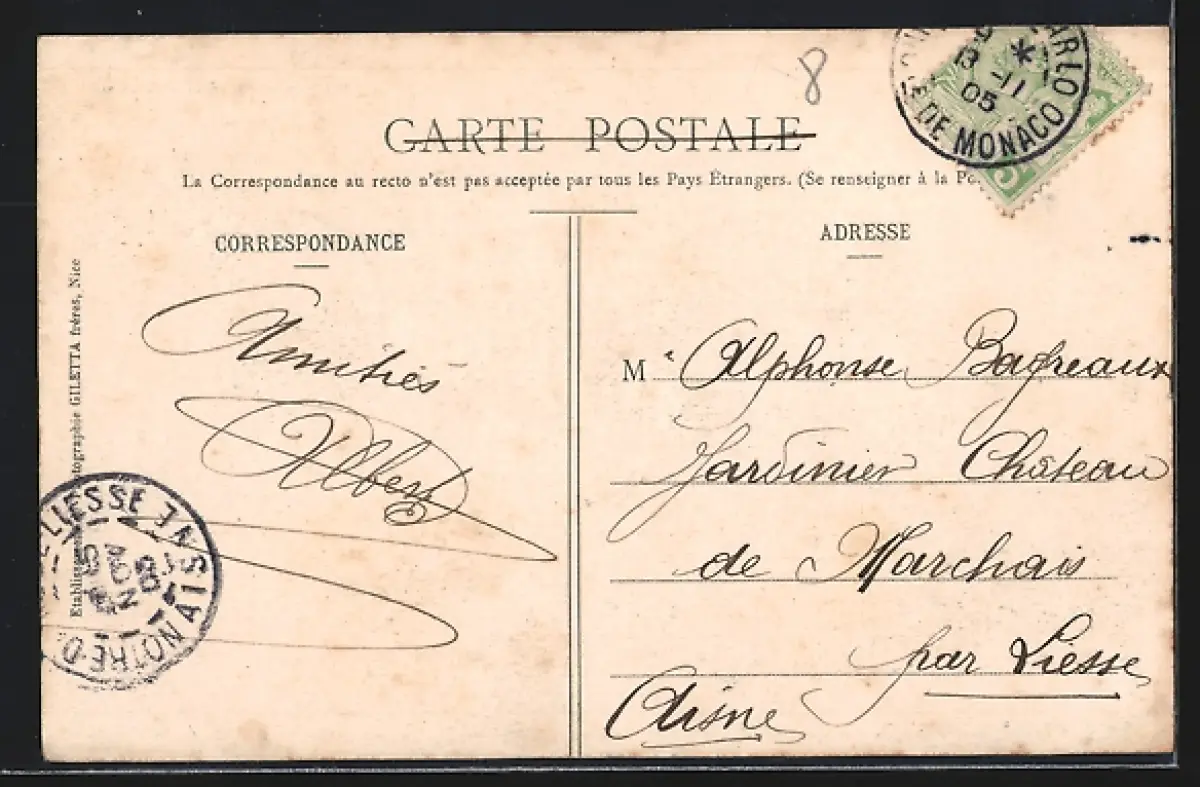 8
CARTE POSTALE
La Correspondance au recto n'est pas acceptée par tous les Pays Étrangers. (Se renseigner à la
CORRESPONDANCE
ADRESSE
Amitiés
Albert
Mr Alphonse Bagreaux
Jardinier Château
de Marchais
par Liesse
Aisne
GILETTA frères, Nice
DE MONACO
05
5
LIESSE
AISNE
NOTRE-D